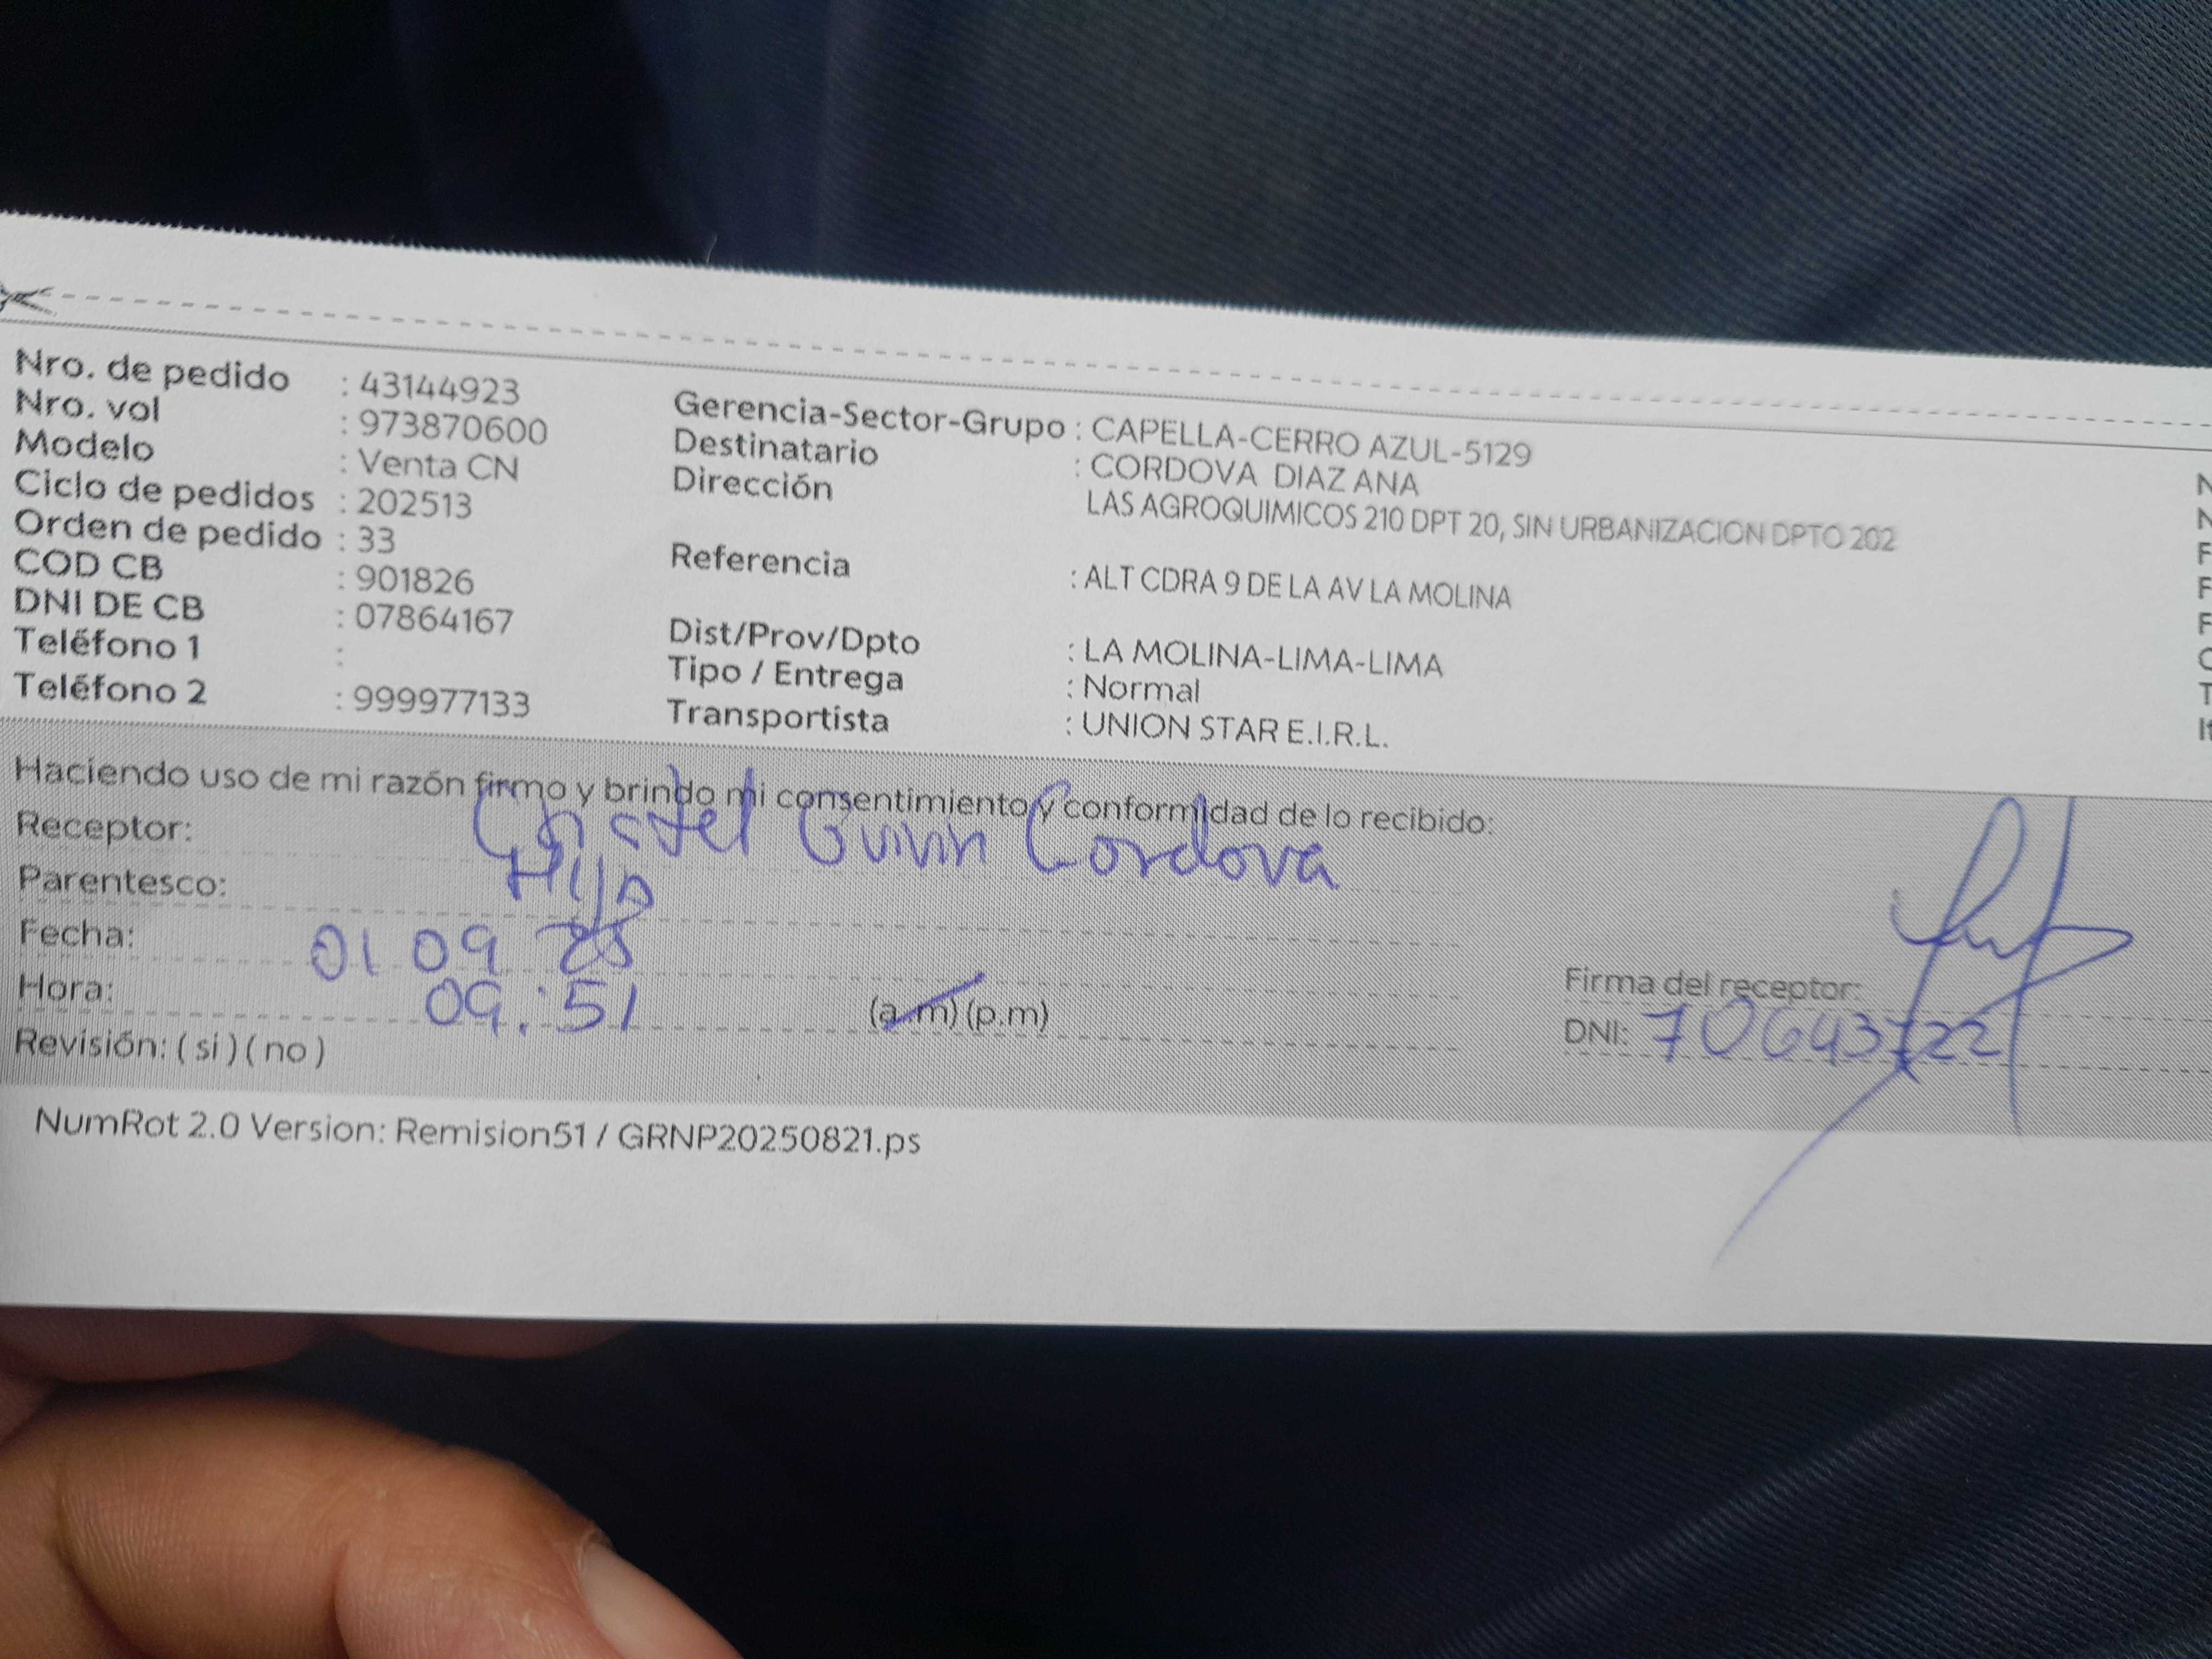 Nro. de pedido : 43144923
Nro. vol : 973870600
Modelo : Venta CN
Ciclo de pedidos : 202513
Orden de pedido : 33
COD CB : 901826
DNI DE CB : 07864167
Teléfono 1 :
Teléfono 2 : 999977133
Gerencia-Sector-Grupo : CAPELLA-CERRO AZUL-5129
Destinatario : CORDOVA DIAZ ANA
Dirección LAS AGROQUIMICOS 210 DPT 20, SIN URBANIZACION DPTO 202
Referencia : ALT CDRA 9 DE LA AV LA MOLINA
Dist/Prov/Dpto : LA MOLINA-LIMA-LIMA
Tipo / Entrega : Normal
Transportista : UNION STAR E.I.R.L.
Haciendo uso de mi razón firmo y brindo mi consentimiento y conformidad de lo recibido:
Receptor: Cordova
Parentesco:
Fecha: 01 09 25
Hora: 09:51 (a.m) (p.m)
Revisión: ( si ) ( no )
Firma del receptor:
DNI: 70643722
NumRot 2.0 Version: Remision51 / GRNP20250821.ps